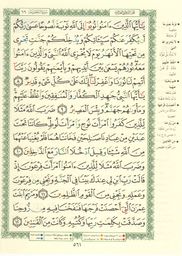 يَٰٓأَيُّهَا ٱلَّذِينَ ءَامَنُوا۟ تُوبُوٓا۟ إِلَى ٱللَّهِ تَوْبَةً نَّصُوحًا عَسَىٰ رَبُّكُمْ
أَن يُكَفِّرَ عَنكُمْ سَيِّـَٔاتِكُمْ وَيُدْخِلَكُمْ جَنَّٰتٍ تَجْرِى
مِن تَحْتِهَا ٱلْأَنْهَٰرُ يَوْمَ لَا يُخْزِى ٱللَّهُ ٱلنَّبِىَّ وَٱلَّذِينَ ءَامَنُوا۟
مَعَهُۥ نُورُهُمْ يَسْعَىٰ بَيْنَ أَيْدِيهِمْ وَبِأَيْمَٰنِهِمْ يَقُولُونَ رَبَّنَآ
أَتْمِمْ لَنَا نُورَنَا وَٱغْفِرْ لَنَآ إِنَّكَ عَلَىٰ كُلِّ شَىْءٍ قَدِيرٌ ٨
يَٰٓأَيُّهَا ٱلنَّبِىُّ جَٰهِدِ ٱلْكُفَّارَ وَٱلْمُنَٰفِقِينَ وَٱغْلُظْ عَلَيْهِمْ
وَمَأْوَىٰهُمْ جَهَنَّمُ وَبِئْسَ ٱلْمَصِيرُ ٩ ضَرَبَ ٱللَّهُ مَثَلًا
لِّلَّذِينَ كَفَرُوا۟ ٱمْرَأَتَ نُوحٍ وَٱمْرَأَتَ لُوطٍ كَانَتَا تَحْتَ
عَبْدَيْنِ مِنْ عِبَادِنَا صَٰلِحَيْنِ فَخَانَتَاهُمَا فَلَمْ يُغْنِيَا عَنْهُمَا
مِنَ ٱللَّهِ شَيْـًٔا وَقِيلَ ٱدْخُلَا ٱلنَّارَ مَعَ ٱلدَّٰخِلِينَ ١٠
وَضَرَبَ ٱللَّهُ مَثَلًا لِّلَّذِينَ ءَامَنُوا۟ ٱمْرَأَتَ فِرْعَوْنَ إِذْ
قَالَتْ رَبِّ ٱبْنِ لِى عِندَكَ بَيْتًا فِى ٱلْجَنَّةِ وَنَجِّنِى مِن فِرْعَوْنَ
وَعَمَلِهِۦ وَنَجِّنِى مِنَ ٱلْقَوْمِ ٱلظَّٰلِمِينَ ١١ وَمَرْيَمَ ٱبْنَتَ
عِمْرَٰنَ ٱلَّتِىٓ أَحْصَنَتْ فَرْجَهَا فَنَفَخْنَا فِيهِ مِن رُّوحِنَا
وَصَدَّقَتْ بِكَلِمَٰتِ رَبِّهَا وَكُتُبِهِۦ وَكَانَتْ مِنَ ٱلْقَٰنِتِينَ ١٢
٥٦١